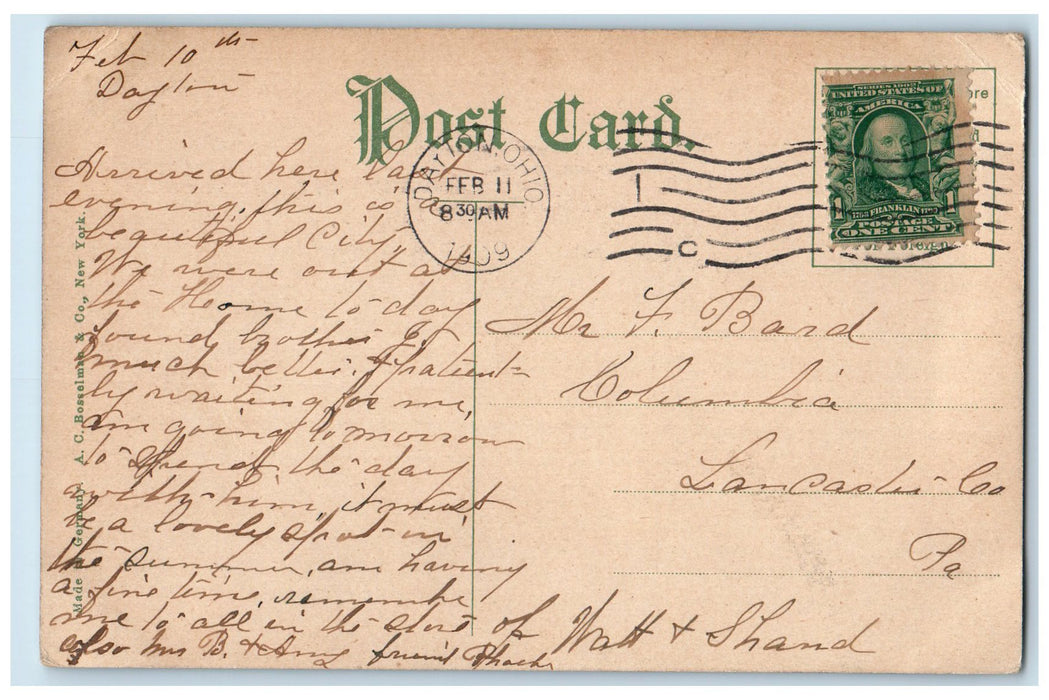 Feb 10th
Dayton
Post Card.
Arrived here last
evening, this is a
beautiful City,
We were out at
the Home to day
found brother
much better. & patient-
ly waiting for me,
am going tomorrow
to spend the day
with him, it must
be a lovely spot in
the summer, am having
a fine time, remember
me to all in the store of Watt & Shand
also Mrs B. & Amy friend Phoebe
DAYTON, OHIO
FEB 11
8 30 AM
1909
1 C
SERIES 1902
UNITED STATES OF
AMERICA
1 FRANKLIN 1
POSTAGE
ONE CENT
For Foreign
Mr F. Bard
Columbia
Lancaster Co
Pa
Made in Germany. A. C. Bosselman & Co., New York.